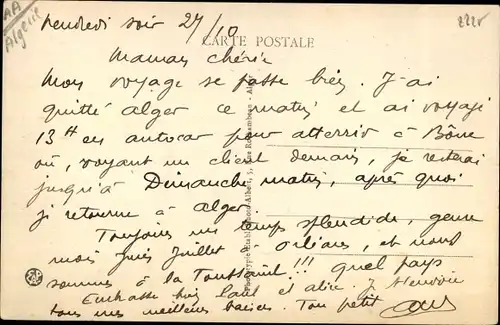 AA
Algérie
222V
Vendredi soir 27/10
CARTE POSTALE
Maman chérie
Mon voyage se passe bien. J'ai
quitté Alger ce matin et ai voyagé
13H en autocar pour atterrir à Bône
où, voyant un client demain, je resterai
jusqu'à Dimanche matin, après quoi
je retourne à Alger.
Toujours un temps splendide, genre
mois juin juillet à Orléans, et nous
sommes à la Toussaint!!! Quel pays
Embrasse bien Paul et Alice. J t'envoie
tous mes meilleurs baisers. Ton petit